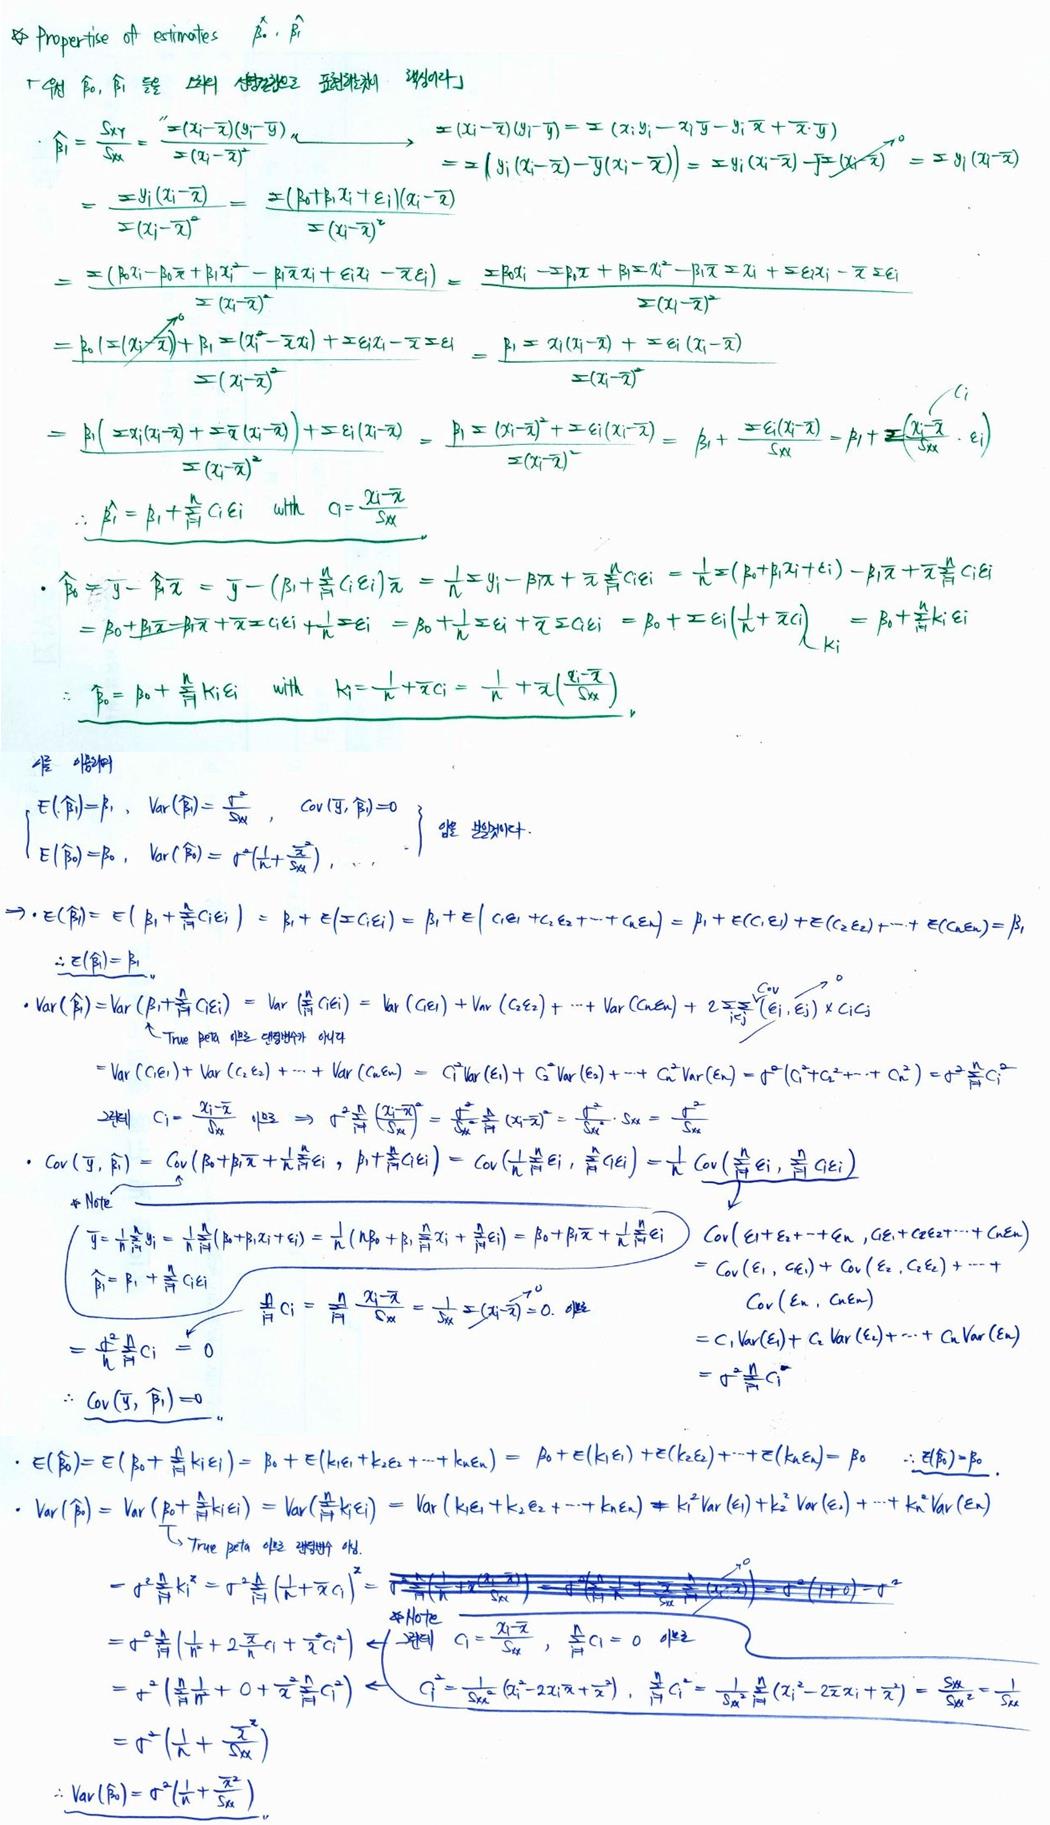 * Propertise of estimates β̂₀, β̂₁
「우선 β̂₀, β̂₁ 들을 의 선형결합으로 표현하는것이 핵심이다」
· β̂₁ = Sxy/Sxx = Σ(xi-x̄)(yi-ȳ) / Σ(xi-x̄)² → Σ(xi-x̄)(yi-ȳ) = Σ(xiyi - xiȳ - yix̄ + x̄·ȳ)
= Σ(yi(xi-x̄) - ȳ(xi-x̄)) = Σyi(xi-x̄) - ȳΣ(xi-x̄) → 0 = Σyi(xi-x̄)
= Σyi(xi-x̄) / Σ(xi-x̄)² = Σ(β₀+β₁xi+εi)(xi-x̄) / Σ(xi-x̄)²
= Σ(β₀xi - β₀x̄ + β₁xi² - β₁x̄xi + εixi - x̄εi) / Σ(xi-x̄)² = (Σβ₀xi - Σβ₀x̄ + β₁Σxi² - β₁x̄Σxi + Σεixi - x̄Σεi) / Σ(xi-x̄)²
= (β₀(Σ(xi-x̄) → 0) + β₁Σ(xi²-x̄xi) + Σεixi - x̄Σεi) / Σ(xi-x̄)² = (β₁Σxi(xi-x̄) + Σεi(xi-x̄)) / Σ(xi-x̄)²
= (β₁(Σxi(xi-x̄) + Σx̄(xi-x̄)) + Σεi(xi-x̄)) / Σ(xi-x̄)² = (β₁Σ(xi-x̄)² + Σεi(xi-x̄)) / Σ(xi-x̄)² = β₁ + Σεi(xi-x̄)/Sxx = β₁ + Σ((xi-x̄)/Sxx · εi) Ci
∴ β̂₁ = β₁ + Σⁿᵢ₌₁ Ciεi with Ci = (xi-x̄)/Sxx
· β̂₀ = ȳ - β̂₁x̄ = ȳ - (β₁ + Σⁿᵢ₌₁ Ciεi)x̄ = 1/n Σyi - β₁x̄ + x̄Σⁿᵢ₌₁ Ciεi = 1/n Σ(β₀+β₁xi+εi) - β₁x̄ + x̄Σⁿᵢ₌₁ Ciεi
= β₀ + β₁x̄ - β₁x̄ + x̄ΣCiεi + 1/n Σεi = β₀ + 1/n Σεi + x̄ΣCiεi = β₀ + Σεi(1/n + x̄Ci) Ki = β₀ + Σⁿᵢ₌₁ kiεi
∴ β̂₀ = β₀ + Σⁿᵢ₌₁ Kiεi with Ki = 1/n + x̄Ci = 1/n + x̄((xi-x̄)/Sxx)
이용하여
E(β̂₁)=β₁, Var(β̂₁) = σ²/Sxx, Cov(ȳ, β̂₁)=0
E(β̂₀)=β₀, Var(β̂₀) = σ²(1/n + x̄²/Sxx), ... 임을 보일것이다.
→ · E(β̂₁) = E(β₁ + Σⁿᵢ₌₁ Ciεi) = β₁ + E(ΣCiεi) = β₁ + E(C₁ε₁ + C₂ε₂ + ··· + Cnεn) = β₁ + E(C₁ε₁) + E(C₂ε₂) + ··· + E(Cnεn) = β₁
∴ E(β̂₁) = β₁
· Var(β̂₁) = Var(β₁ + Σⁿᵢ₌₁ Ciεi) = Var(Σⁿᵢ₌₁ Ciεi) = Var(C₁ε₁) + Var(C₂ε₂) + ··· + Var(Cnεn) + 2ΣΣ i<j Cov(εi, εj) → 0 × CiCj
True beta 이므로 랜덤변수가 아니다
= Var(C₁ε₁) + Var(C₂ε₂) + ··· + Var(Cnεn) = C₁²Var(ε₁) + C₂²Var(ε₂) + ··· + Cn²Var(εn) = σ²(C₁²+C₂²+···+Cn²) = σ²Σⁿᵢ₌₁ Ci²
그런데 Ci = (xi-x̄)/Sxx 이므로 ⇒ σ²Σⁿᵢ₌₁((xi-x̄)/Sxx)² = σ²/Sxx² Σⁿᵢ₌₁(xi-x̄)² = σ²/Sxx² · Sxx = σ²/Sxx
· Cov(ȳ, β̂₁) = Cov(β₀+β₁x̄+1/n Σⁿᵢ₌₁ εi, β₁+Σⁿᵢ₌₁ Ciεi) = Cov(1/n Σⁿᵢ₌₁ εi, Σⁿᵢ₌₁ Ciεi) = 1/n Cov(Σⁿᵢ₌₁ εi, Σⁿᵢ₌₁ Ciεi)
* Note
ȳ = 1/n Σⁿᵢ₌₁ yi = 1/n Σⁿᵢ₌₁(β₀+β₁xi+εi) = 1/n (nβ₀ + β₁Σⁿᵢ₌₁ xi + Σⁿᵢ₌₁ εi) = β₀+β₁x̄+1/n Σⁿᵢ₌₁ εi
β̂₁ = β₁ + Σⁿᵢ₌₁ Ciεi
Cov(ε₁+ε₂+···+εn, C₁ε₁+C₂ε₂+···+Cnεn)
= Cov(ε₁, C₁ε₁) + Cov(ε₂, C₂ε₂) + ··· +
Cov(εn, Cnεn)
= C₁Var(ε₁) + C₂Var(ε₂) + ··· + CnVar(εn)
= σ²Σⁿᵢ₌₁ Ci²
Σⁿᵢ₌₁ Ci = Σⁿᵢ₌₁ (xi-x̄)/Sxx = 1/Sxx Σ(xi-x̄) → 0 = 0. 이므로
= σ²/n Σⁿᵢ₌₁ Ci = 0
∴ Cov(ȳ, β̂₁)=0
· E(β̂₀) = E(β₀ + Σⁿᵢ₌₁ kiεi) = β₀ + E(k₁ε₁+k₂ε₂+···+knεn) = β₀ + E(k₁ε₁) + E(k₂ε₂) + ··· + E(knεn) = β₀ ∴ E(β̂₀)=β₀
· Var(β̂₀) = Var(β₀ + Σⁿᵢ₌₁ kiεi) = Var(Σⁿᵢ₌₁ kiεi) = Var(k₁ε₁+k₂ε₂+···+knεn) = k₁²Var(ε₁) + k₂²Var(ε₂) + ··· + kn²Var(εn)
True beta 이므로 랜덤변수 아님.
= σ²Σⁿᵢ₌₁ ki² = σ²Σⁿᵢ₌₁(1/n + x̄Ci)² = = σ²(1+0) = σ²
= σ²Σⁿᵢ₌₁(1/n² + 2x̄/n Ci + x̄²Ci²)
= σ²(Σⁿᵢ₌₁ 1/n² + 0 + x̄²Σⁿᵢ₌₁ Ci²)
* Note
그런데 Ci = (xi-x̄)/Sxx, Σⁿᵢ₌₁ Ci = 0 이므로
Ci² = 1/Sxx² (xi²-2xix̄+x̄²), Σⁿᵢ₌₁ Ci² = 1/Sxx² Σⁿᵢ₌₁(xi²-2x̄xi+x̄²) = Sxx/Sxx² = 1/Sxx
= σ²(1/n + x̄²/Sxx)
∴ Var(β̂₀) = σ²(1/n + x̄²/Sxx)